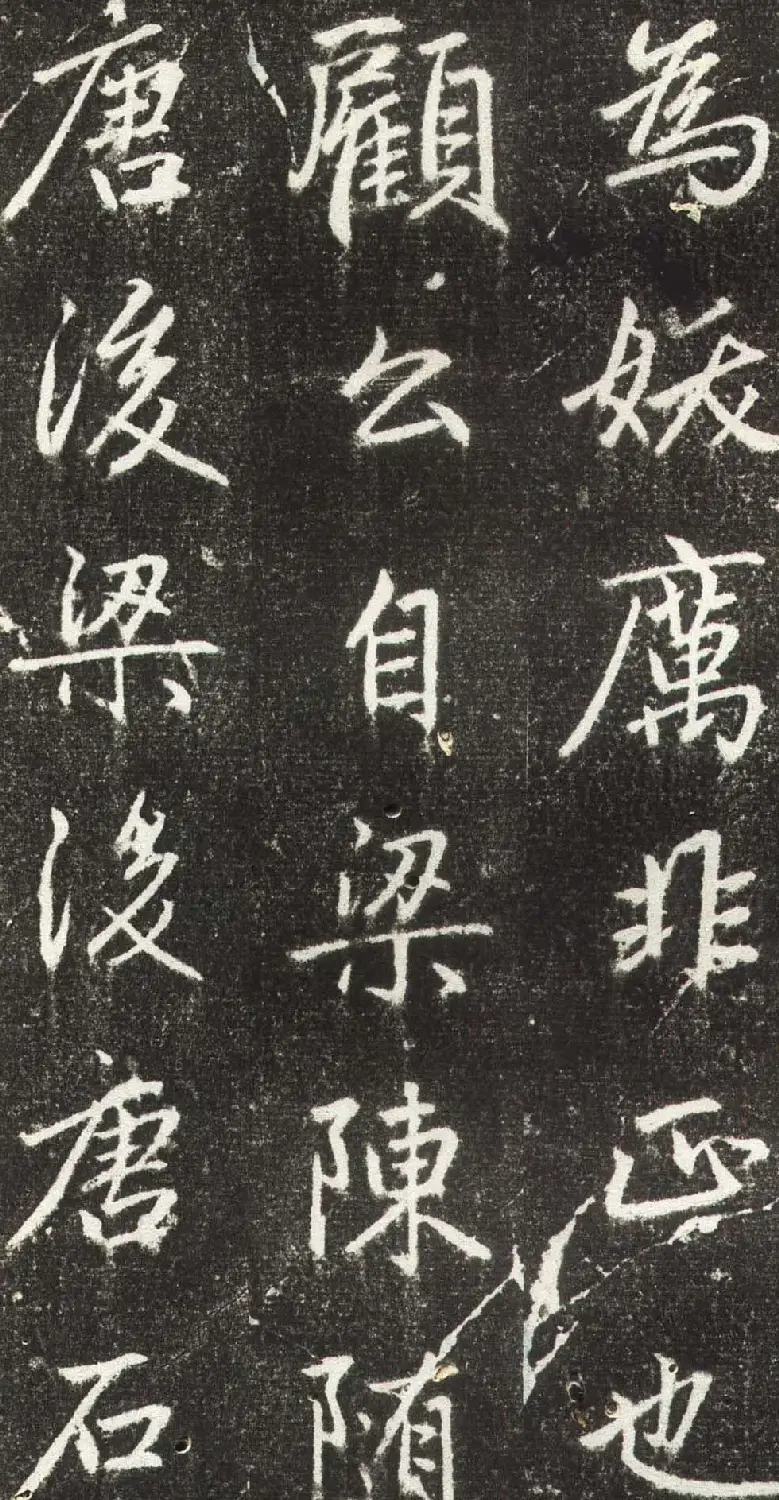 為妖厲非正也
顧公自梁陳隨
唐後梁後唐石